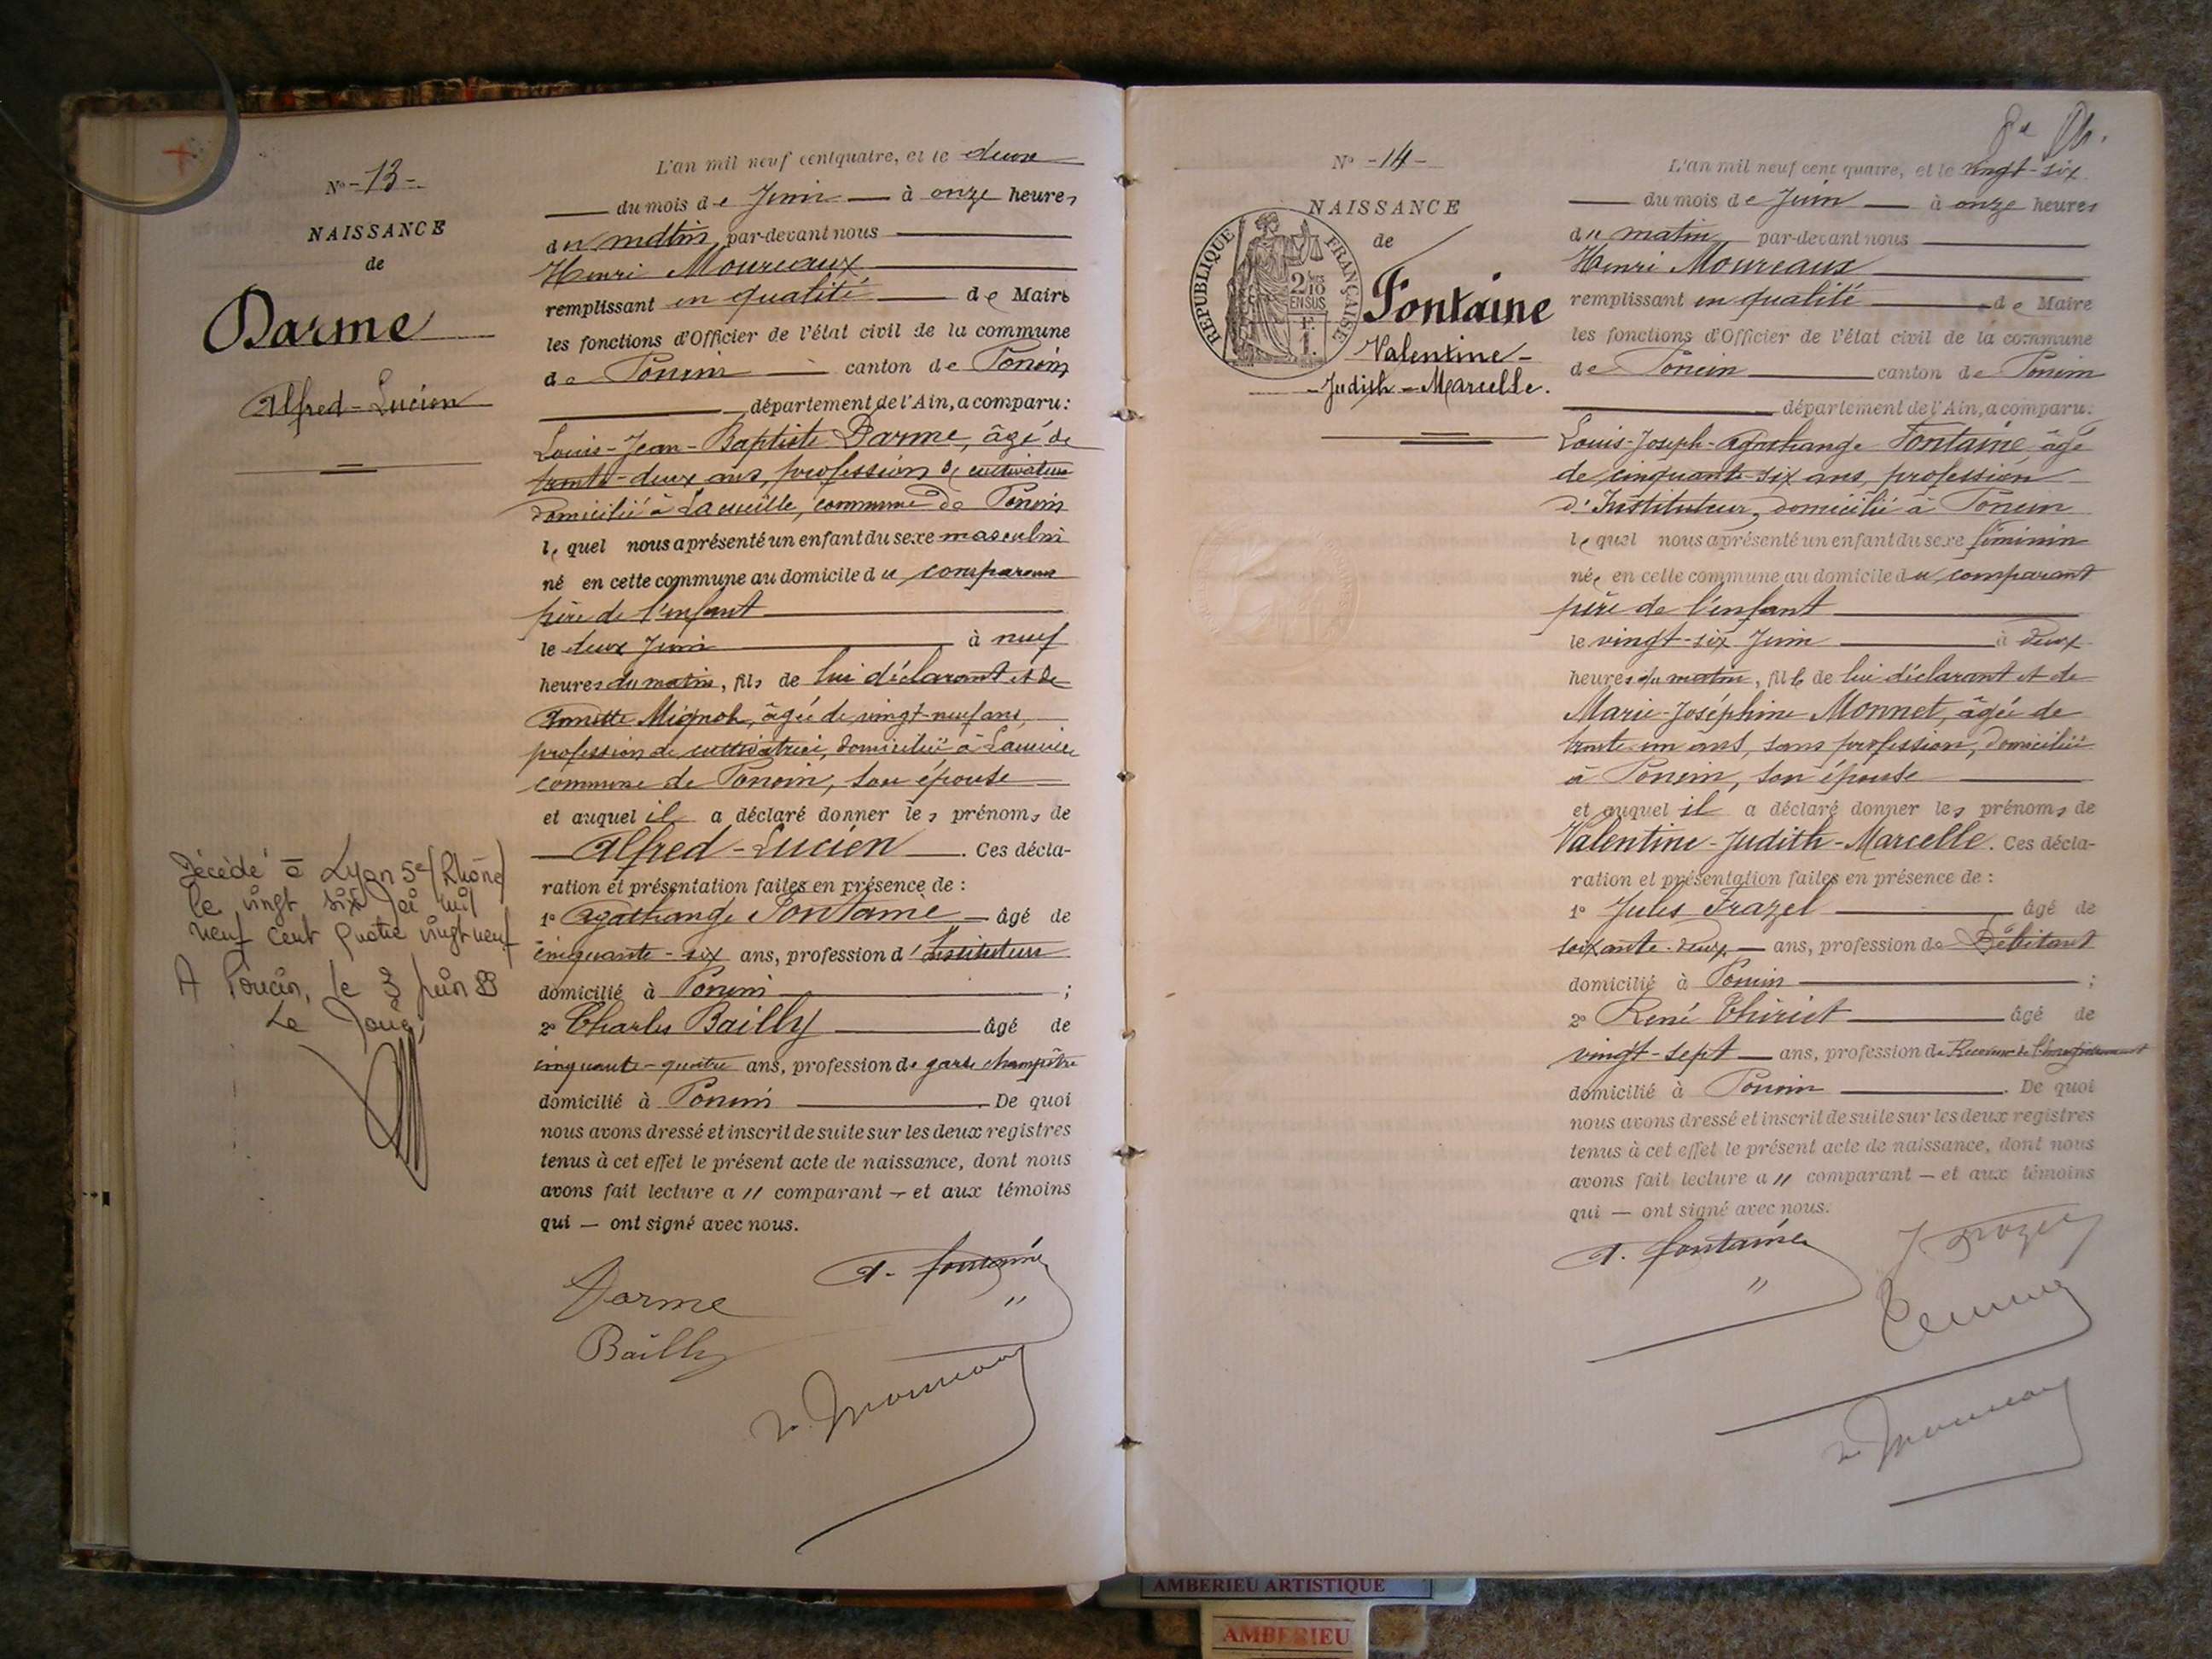 +
N° - 13 -
NAISSANCE
de
Darme
Alfred - Lucien
Décédé à Lyon 5e (Rhône)
le vingt six Mai mil
neuf cent quatre vingt neuf
A Poncin, le 3 Juin 89
Le
L'an mil neuf cent quatre, et le deux
du mois de Juin à onze heures
du matin, par-devant nous
Henri Moureaux
remplissant en qualité de Maire
les fonctions d'Officier de l'état civil de la commune
de Poncin canton de Poncin
département de l'Ain, a comparu :
Louis-Jean-Baptiste Darme, âgé de
trente-deux ans, profession de cultivateur
domicilié à Lacueille, commune de Poncin
lequel nous a présenté un enfant du sexe masculin
né en cette commune au domicile du comparant
père de l'enfant
le deux Juin à neuf
heures du matin, fils de lui déclarant et de
Annette Mignot, âgée de vingt-neuf ans,
profession de cultivatrice, domiciliée à Lacueille
commune de Poncin, son épouse
et auquel il a déclaré donner les prénoms de
Alfred - Lucien. Ces décla-
ration et présentation faites en présence de :
1° Agathange Fontaine âgé de
cinquante-six ans, profession d'Instituteur
domicilié à Poncin ;
2° Charles Bailly âgé de
cinquante-quatre ans, profession de garde champêtre
domicilié à Poncin De quoi
nous avons dressé et inscrit de suite sur les deux registres
tenus à cet effet le présent acte de naissance, dont nous
avons fait lecture a u comparant — et aux témoins
qui — ont signé avec nous.
Darme A. Fontaine
Bailly
H. Moureaux
N° - 14 -
NAISSANCE
de
Fontaine
Valentine -
- Judith - Marcelle.
REPUBLIQUE FRANÇAISE
2/10
EN SUS
L'an mil neuf cent quatre, et le vingt-six
du mois de Juin à onze heures
du matin par-devant nous
Henri Moureaux
remplissant en qualité de Maire
les fonctions d'Officier de l'état civil de la commune
de Poncin canton de Poncin
département de l'Ain, a comparu :
Louis-Joseph-Agathange Fontaine âgé
de cinquante-six ans, profession
d'Instituteur, domicilié à Poncin
lequel nous a présenté un enfant du sexe féminin
née en cette commune au domicile du comparant
père de l'enfant
le vingt-six Juin à deux
heures du matin, fille de lui déclarant et de
Marie-Joséphine Monnet, âgée de
trente un ans, sans profession, domiciliée
à Poncin, son épouse
et auquel il a déclaré donner les prénoms de
Valentine-Judith-Marcelle. Ces décla-
ration et présentation faites en présence de :
1° Jules Frazel âgé de
soixante-deux ans, profession de Débitant
domicilié à Poncin ;
2° René Thiriet âgé de
vingt-sept ans, profession de Receveur de l'Enregistrement
domicilié à Poncin. De quoi
nous avons dressé et inscrit de suite sur les deux registres
tenus à cet effet le présent acte de naissance, dont nous
avons fait lecture a u comparant — et aux témoins
qui — ont signé avec nous.
A. Fontaine J Frazel
H. Moureaux
AMBERIEU ARTISTIQUE
AMBERIEU